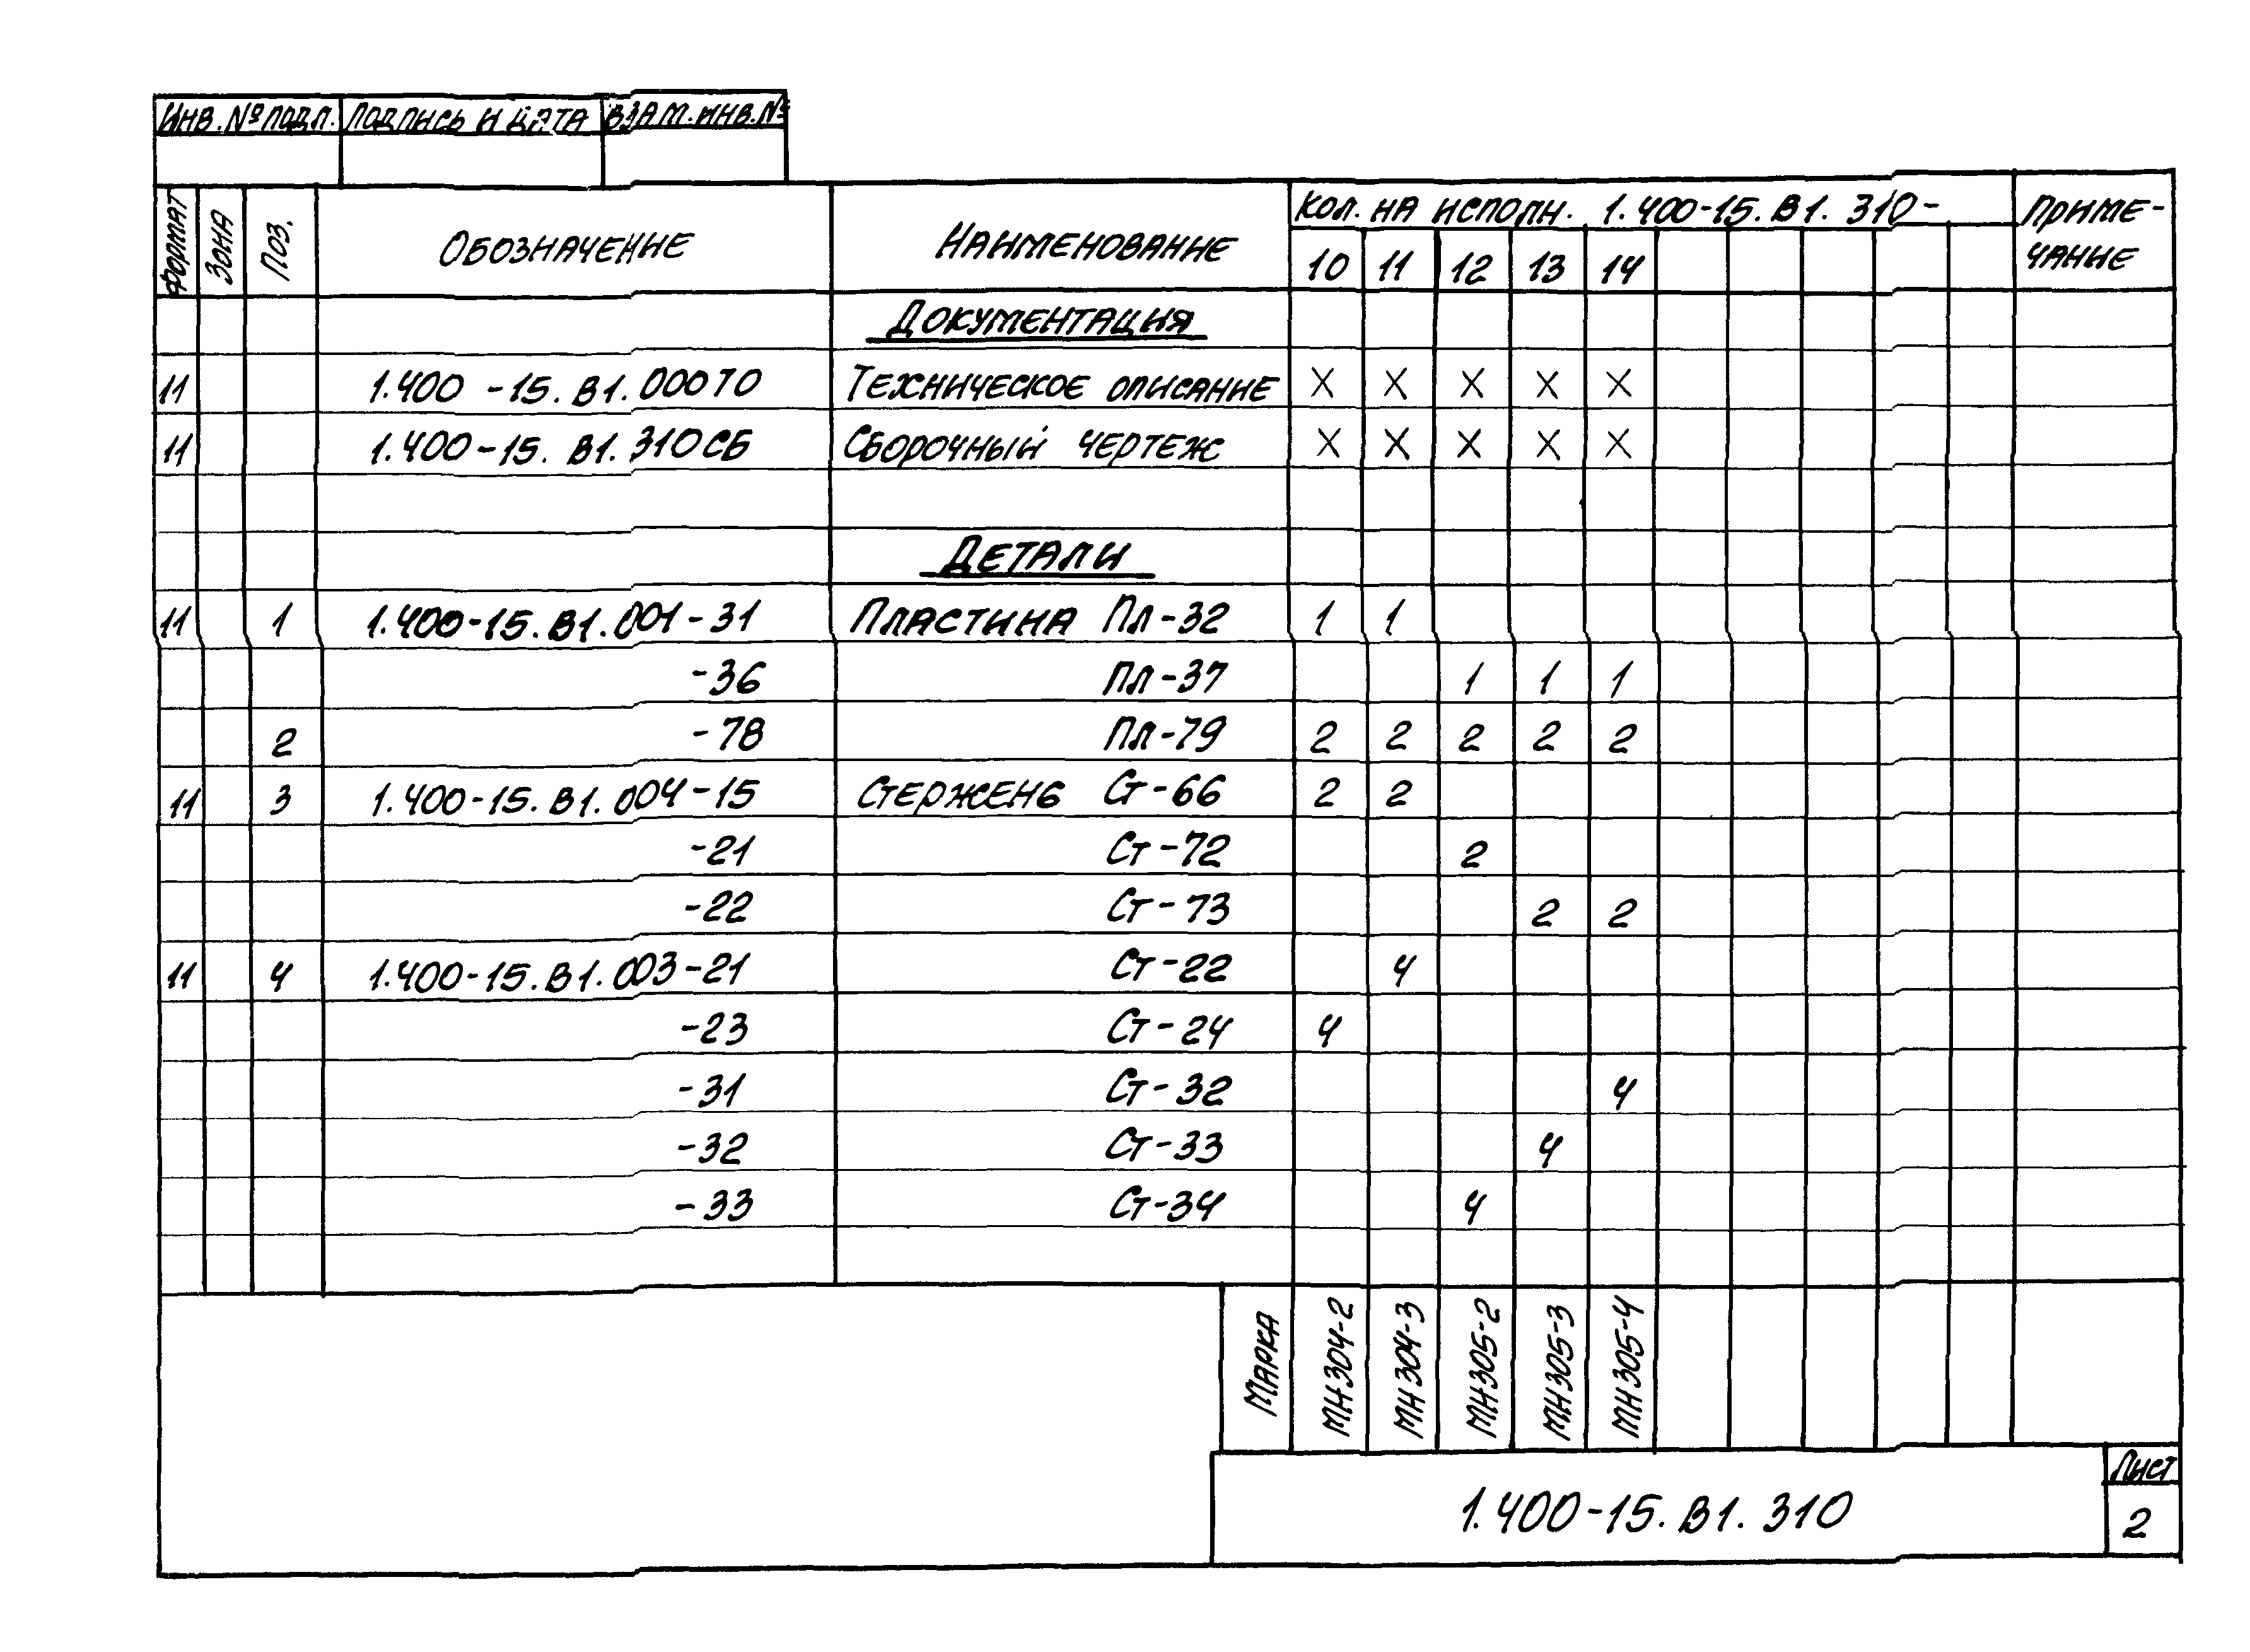 Инв. № подл. Подпись и дата Взам. инв. №
Формат Зона Поз. Обозначение Наименование Кол. на исполн. 1.400-15.В1.310- Приме-
чание
10 11 12 13 14
Документация
11 1.400-15.В1.000ТО Техническое описание X X X X X
11 1.400-15.В1.310СБ Сборочный чертеж X X X X X
Детали
11 1 1.400-15.В1.001-31 Пластина Пл-32 1 1
-36 Пл-37 1 1 1
2 -78 Пл-79 2 2 2 2 2
11 3 1.400-15.В1.004-15 Стержень Ст-66 2 2
-21 Ст-72 2
-22 Ст-73 2 2
11 4 1.400-15.В1.003-21 Ст-22 4
-23 Ст-24 4
-31 Ст-32 4
-32 Ст-33 4
-33 Ст-34 4
Марка МН304-2 МН304-3 МН305-2 МН305-3 МН305-4
1.400-15.В1.310
Лист
2